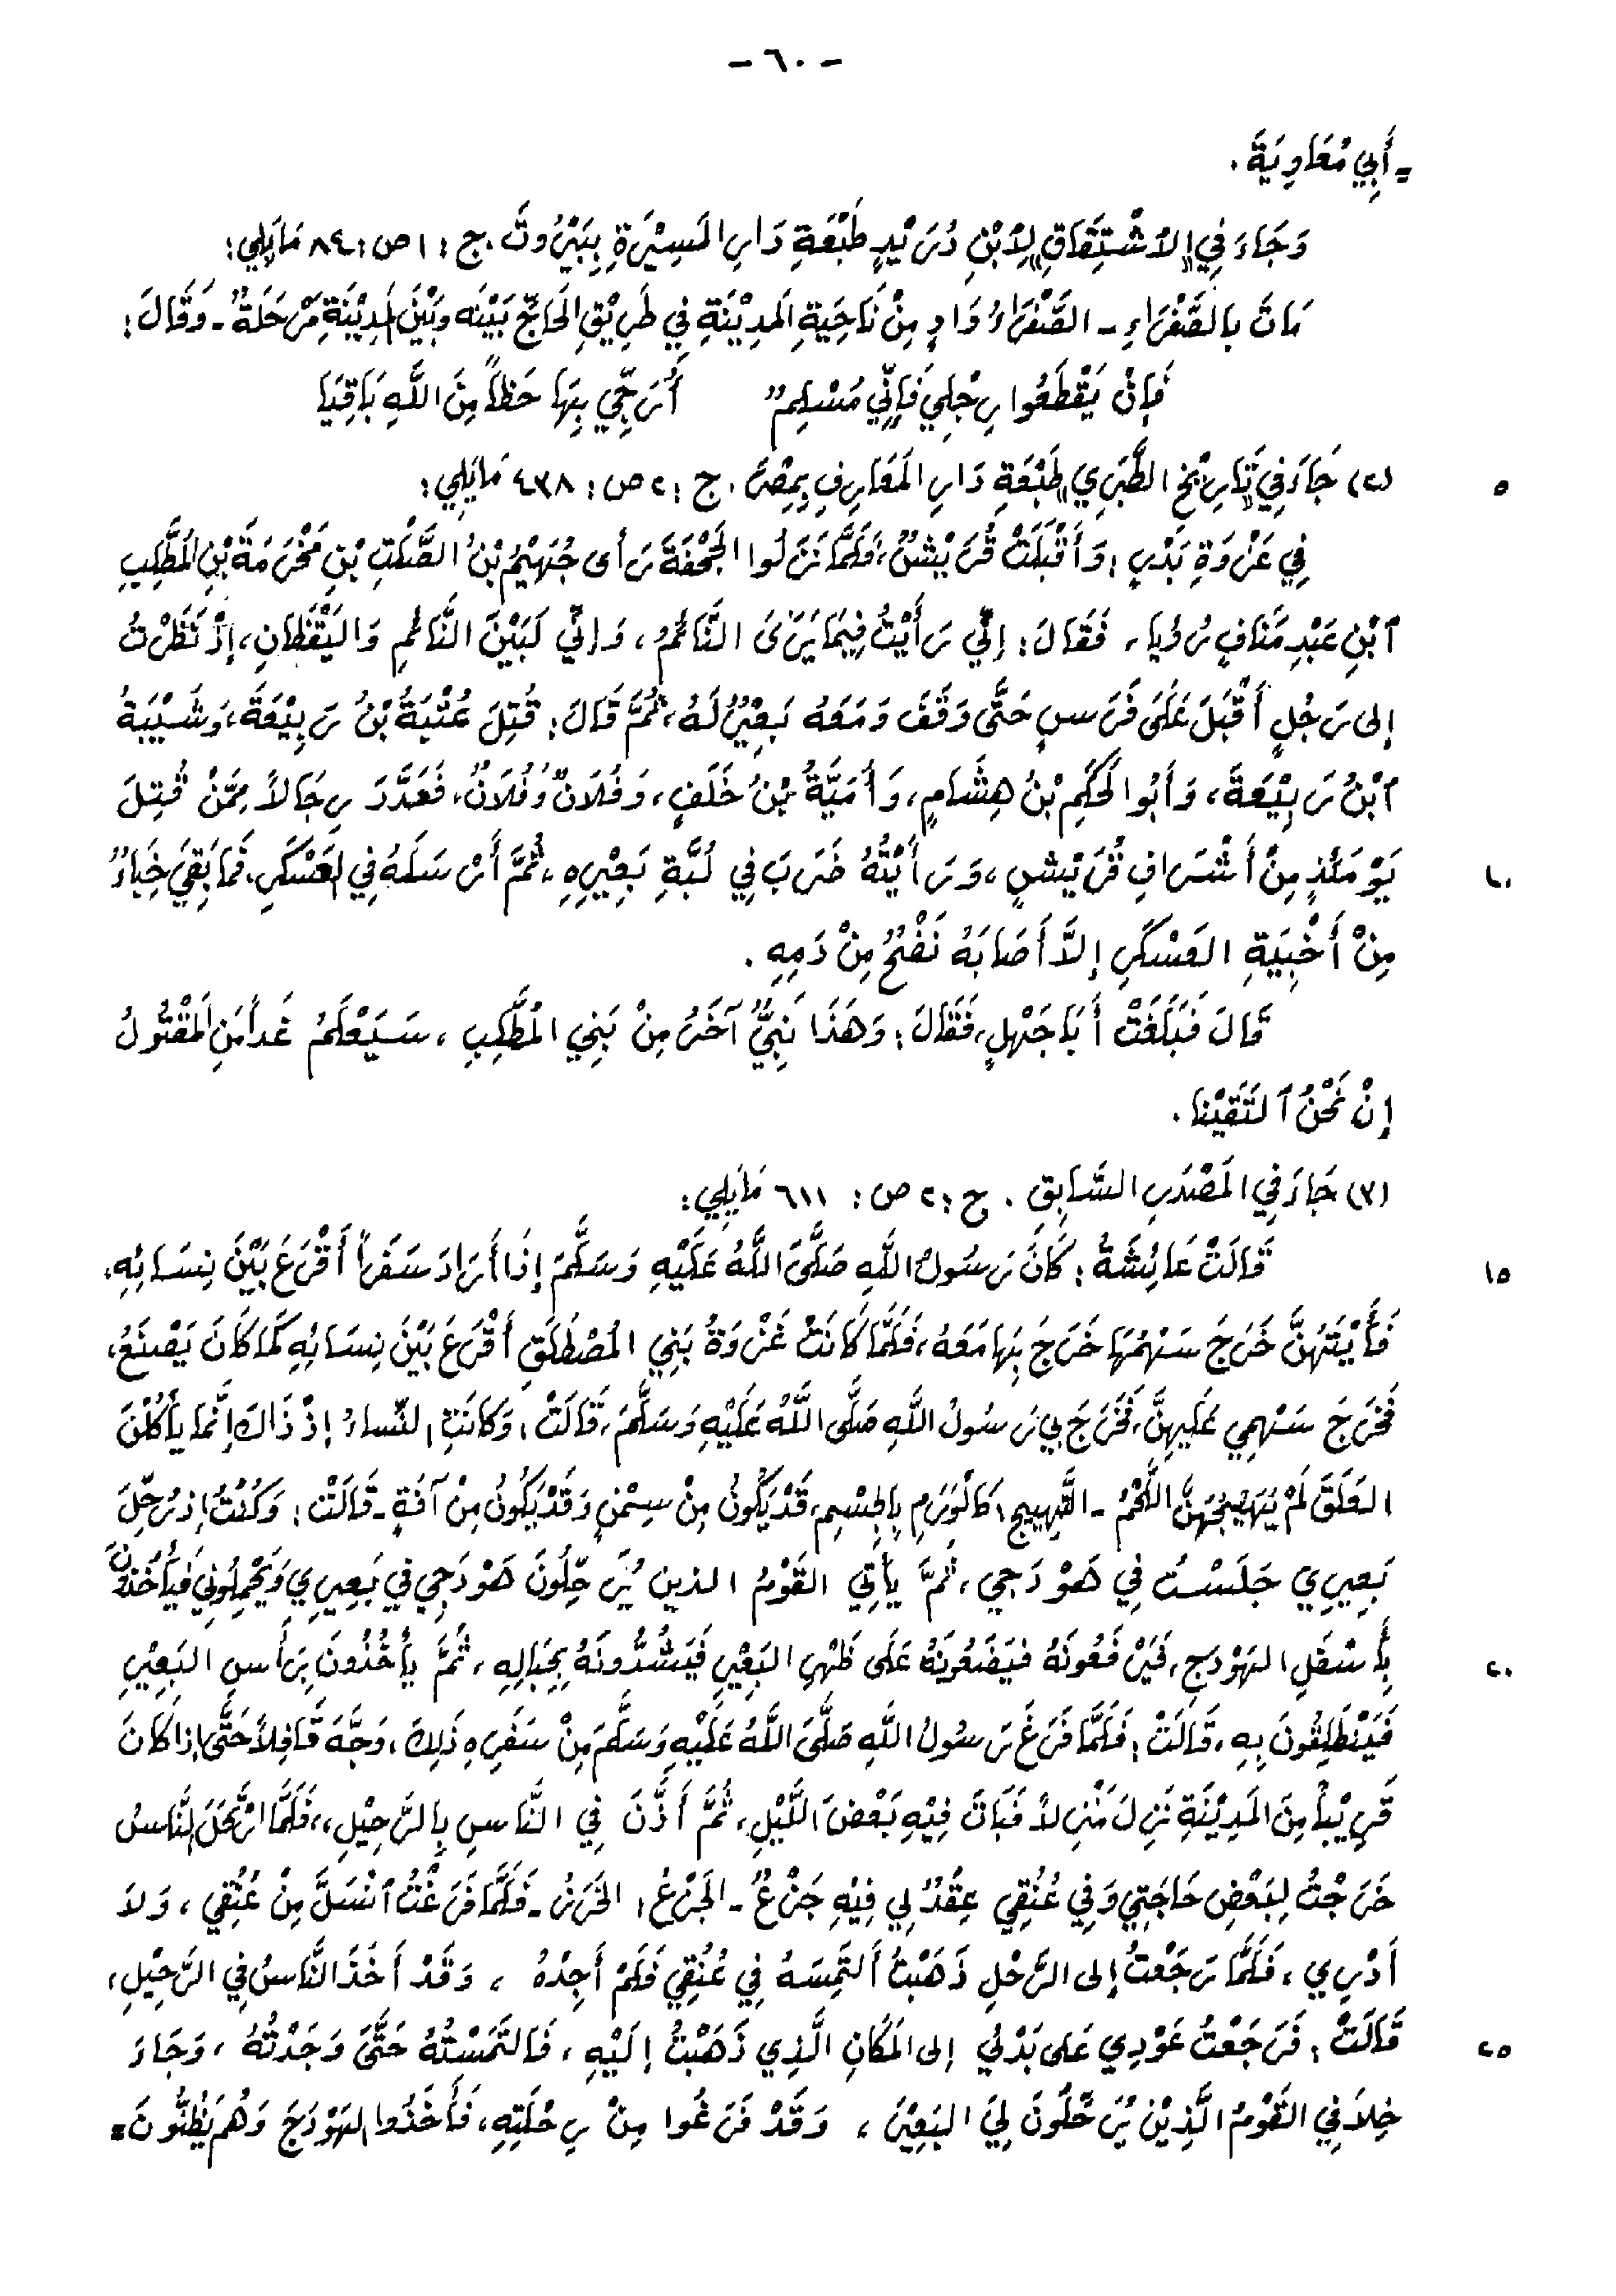 - ٦٠ -
= أَبِي مُعَاوِيَةَ .
وَجَاءَ فِي «الاشْتِقَاقِ» لِابْنِ دُرَيْدٍ طَبْعَةِ دَارِ المَسِيْرَةِ بِبَيْرُوتَ . ج : ١ ص : ٨٤ مَايَلِي :
مَاتَ بِالصَّفْرَاءِ - الصَّفْرَاءُ وَادٍ مِنْ نَاحِيَةِ المَدِيْنَةِ فِي طَرِيْقِ الحَاجِّ بَيْنَه وبَيْنَ المَدِيْنَةِ مَرْحَلَةٌ - وَقَالَ :
فَإنْ يَقْطَعُوا رِجْلِي فَإِنِّي مُسْلِمٌ أُرَجِّي بِهَا حَظَّاً مِنَ اللَّهِ بَاقِيَا
(٢) جَاءَ فِي «تَارِيْخِ الطَّبَرِي» طَبْعَةِ دَارِ المَعَارِفِ بِمِصْرَ . ج : ٢ ص : ٤٣٨ مَايَلِي :
٥
فِي غَزْوَةِ بَدْرٍ : وَأَقْبَلَتْ قُرَيْشٌ ، فَلَمَّا نَزَلُوا الجُحْفَةَ رَأى جُهَيْمُ بْنُ الصَّلْتِ بْنِ مَخْرَمَةَ بْنِ المُطَّلِبِ
ٱبْنِ عَبْدِ مَنَافٍ رُؤيا ، فَقَالَ : إنِّي رَأَيْتُ فِيمَا يَرَى النَّائمُ ، وَإنِّي لَبَيْنَ النَّائمِ وَاليَقْظَانِ ، إذْ نَظَرْتُ
إلى رَجُلٍ أَقْبَلَ عَلَى فَرَسٍ حَتَّى وَقَفَ وَمَعَهُ بَعِيْرٌ لَهُ ، ثُمَّ قَالَ : قُتِلَ عُتْبَةُ بْنُ رَبِيْعَةَ ، وَشَيْبَةُ
ٱبْنُ رَبِيْعَةَ ، وَأَبُو الحَكَمِ بْنُ هِشَامٍ ، وَأُمَيَّةُ بْنُ خَلَفٍ ، وَفُلَانٌ وَفُلَانٌ ، فَعَدَّدَ رِجَالاً مِمَّنْ قُتِلَ
يَوْمَئذٍ مِنْ أَشْرَافِ قُرَيْشٍ ، وَرَأَيْتُهُ ضَرَبَ فِي لَبَّةِ بَعِيْرِهِ ، ثُمَّ أَرْسَلَهُ فِي العَسْكَرِ ، فَمَا بَقِيَ خِبَاءٌ
١٠
مِنْ أَخْبِيَةِ العَسْكَرِ إلاَّ أَصَابَهُ نَضْحٌ مِنْ دَمِهِ .
قَالَ فَبَلَغَتْ أَبَا جَهْلٍ ، فَقَالَ : وَهَذَا نَبِيٌّ آخَرُ مِنْ بَنِي المُطَّلِبِ ، سَيَعْلَمُ غَداً مَنِ المَقْتُولُ
إنْ نَحْنُ ٱلتَقَيْنا .
(٣) جَاءَ فِي المَصْدَرِ السَّابِقِ . ج : ٢ ص : ٦١١ مَايَلِي :
قَالَتْ عَائِشَةُ : كَانَ رَسُولُ اللَّهِ صَلَّى اللَّهُ عَلَيْهِ وَسَلَّمَ إذَا أَرَادَ سَفَراً أَقْرَعَ بَيْنَ نِسَائِهِ ،
١٥
فَأَيَّتُهُنَّ خَرَجَ سَهْمُهَا خَرَجَ بِهَا مَعَهُ ، فَلَمَّا كَانَتْ غَزْوَةُ بَنِي المُصْطَلَقِ أَقْرَعَ بَيْنَ نِسَائِهِ كَمَا كَانَ يَصْنَعُ ،
فَخَرَجَ سَهْمِي عَلَيهِنَّ ، فَخَرَجَ بِي رَسُولُ اللَّهِ صَلَّى اللَّهُ عَلَيْهِ وَسَلَّمَ ، قَالَتْ : وَكَانَتِ النِّساءُ إذْ ذَاكَ إنَّمَا يَأكُلْنَ
العَلَقَ لَمْ يُهَيِّجْهُنَّ اللَّحْمُ - التَّهِييجِ : كَالْوَرَمِ بِالجِسْمِ ، قَدْ يَكُونُ مِنْ سِمْنٍ وَقَدْ يَكُونُ مِنْ آفَةٍ - قَالَتْ : وَكُنْتُ إذ رُحِّلَ
بَعِيرِي جَلَسْتُ فِي هَوْدَجِي ، ثُمَّ يأتِي القَوْمُ الذين يُرَحِّلُونَ هَوْدَجِي فِي بَعِيرِي وَيَحْمِلُونِي فَيَأْخُذُونَ
بِأَسْفَلِ الهَوْدَجِ ، فَيَرْفَعُونَهُ فيَضَعُونَهُ عَلَى ظَهْرِ البَعِيْرِ فَيَشُدُّونَهُ بِحِبَالِهِ ، ثُمَّ يأخُذُونَ بِرَأسِ البَعِيْرِ
٢٠
فَيَنْطَلِقُونَ بِهِ ، قَالَتْ : فَلَمَّا فَرَغَ رَسُولُ اللَّهِ صَلَّى اللَّهُ عَلَيْهِ وَسَلَّمَ مِنْ سَفَرِهِ ذَلِكَ ، وَجَّهَ قَافِلاً حَتَّى إذا كَانَ
قَرِيْباً مِنَ المَدِيْنَةِ نَزِلَ مَنْزِلاً فَبَاتَ فِيْهِ بَعْضَ اللَّيْلِ ، ثُمَّ أَذَّنَ فِي النَّاسِ بِالرَّحِيْلِ ، فَلَمَّا ارْتَحَلَ النَّاسُ
خَرَجْتُ لِبَعْضِ حَاجَتِي وَفِي عُنُقِي عِقْدٌ لِي فِيْهِ جَزْعٌ - الجَزْعُ : الخَرَزُ - فَلَمَّا فَرَغْتُ ٱنْسَلَّ مِنْ عُنُقِي ، وَلاَ
أَدْرِي ، فَلَمَّا رَجَعْتُ إلى الرَّحْلِ ذَهَبْتُ أَلتَمِسَهُ فِي عُنُقِي فَلَمْ أَجِدْهُ ، وَقَدْ أَخَذَ النَّاسُ فِي الرَّحِيْلِ ،
قَالَتْ : فَرَجَعْتُ عَوْدِي عَلى بَدْئي إلى المَكَانِ الَّذِي ذَهَبْتُ إلَيْهِ ، فَالتَمَسْتُهُ حَتَّى وَجَدْتُهُ ، وَجَاءَ
٢٥
خِلاَفِي القَوْمُ الَّذِيْنَ يُرَحِّلُونَ لِيَ البَعِيْرَ ، وَقَدْ فَرَغُوا مِنْ رِحْلَتِهِ ، فَأَخَذُوا الهَوْدَجَ وَهُم يَظُنُّونَ =